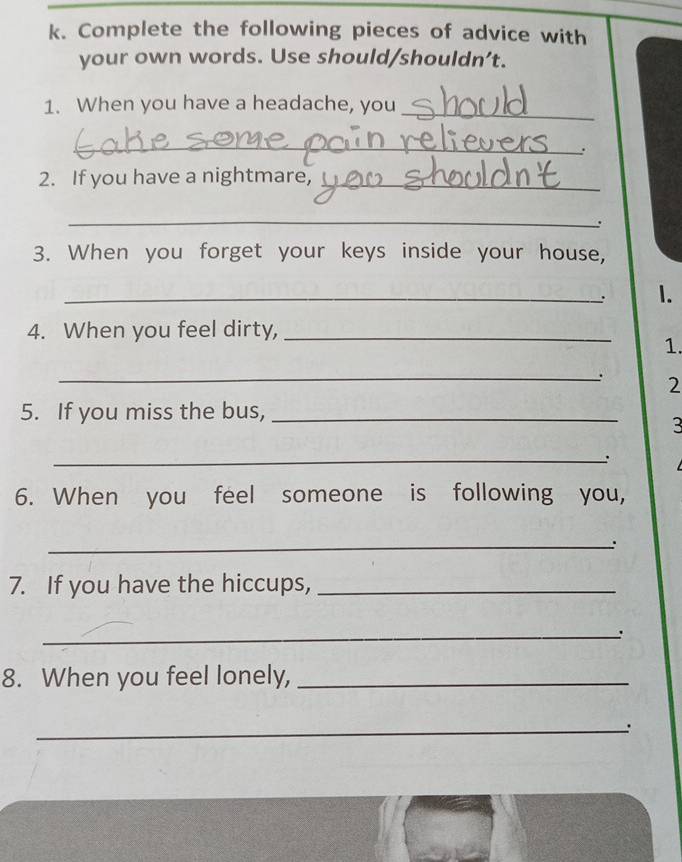 k. Complete the following pieces of advice with
your own words. Use should/shouldn't.
1. When you have a headache, you should
take some pain relievers.
2. If you have a nightmare, you shouldn't
.
3. When you forget your keys inside your house,
.
4. When you feel dirty,
.
5. If you miss the bus,
.
6. When you feel someone is following you,
.
7. If you have the hiccups,
.
8. When you feel lonely,
.
l.
1.
2
3